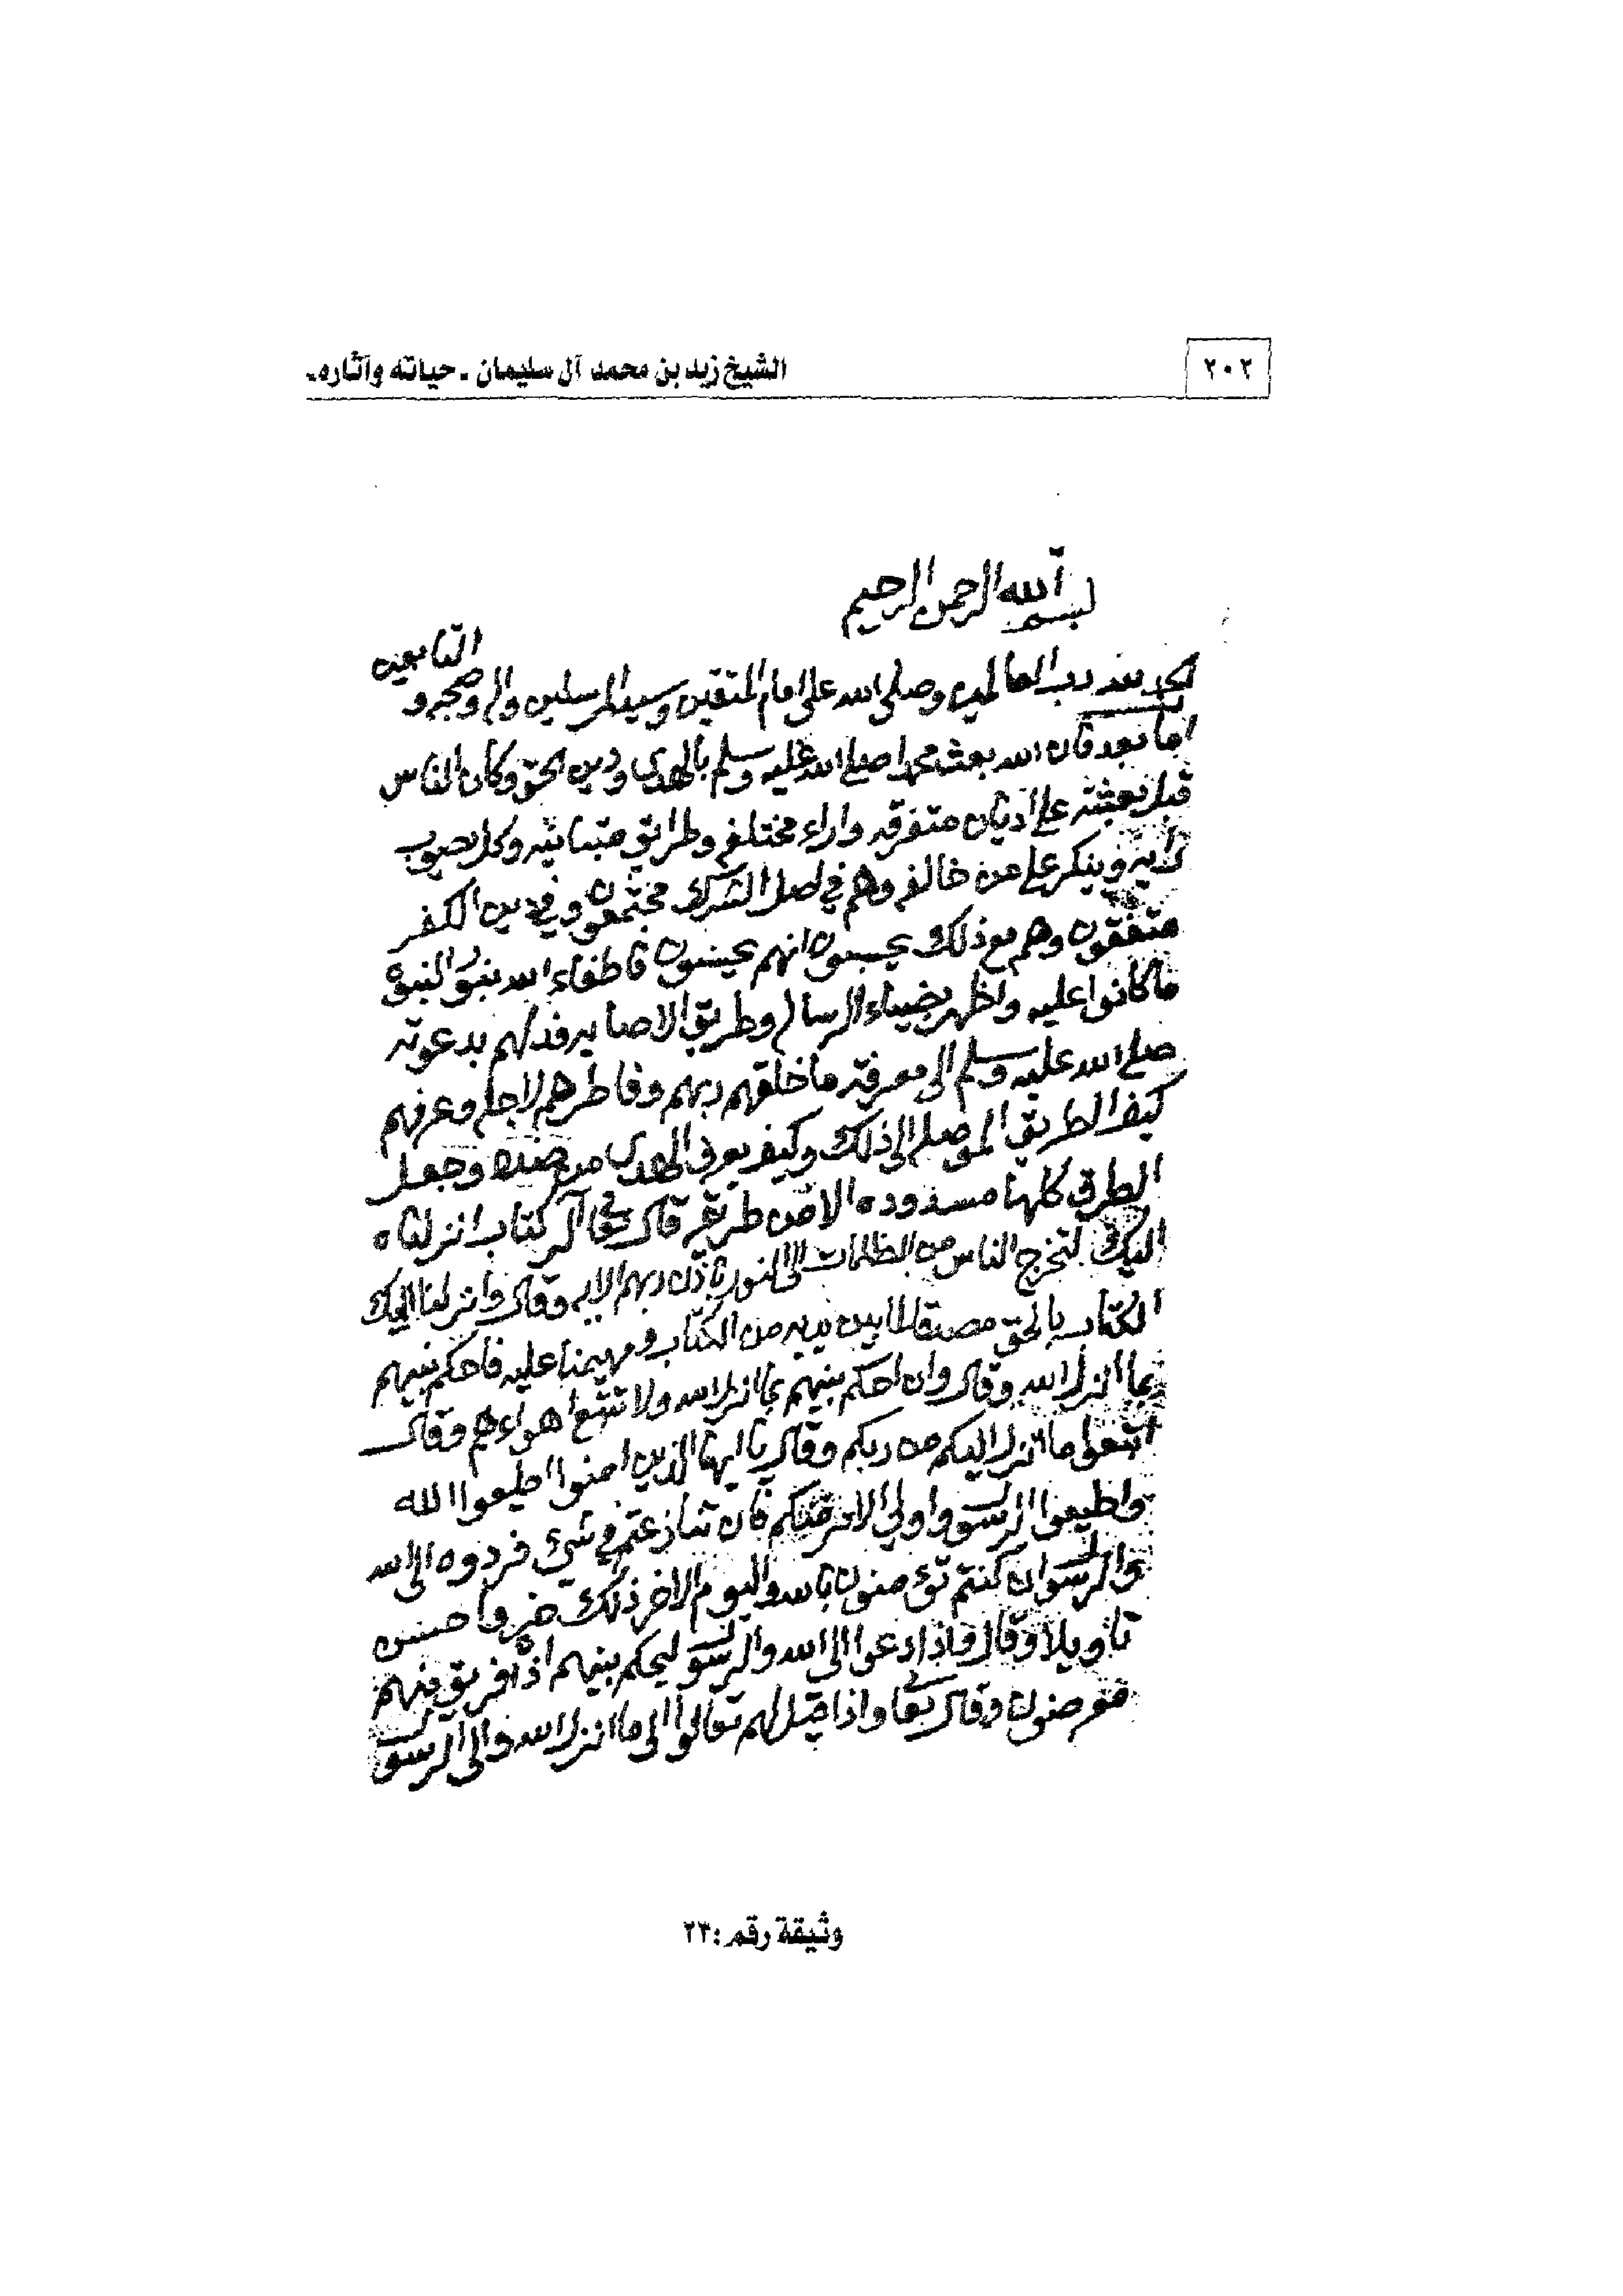 ٢٠٢
الشيخ زيد بن محمد آل سليمان - حياته وآثاره -
بسم الله الرحمن الرحيم
الحمد لله رب العالمين وصلى الله على امام المتقين وسيد المرسلين واله وصحبه و التابعين
اما بعد فان الله بعث محمدا صلى الله عليه وسلم بالهدى ودين الحق وكان الناس
قبل بعثته على اديان متفرقه واراء مختلفه وطرايق متباينه وكل يصوب
رايه وينكر على من خالفه وهم في اصل الشرك مجتمعون وفي دين الكفر
متفقون وهم مع ذلك يحسبون انهم يحسنون فاطفاء الله بنور النبوه
ما كانوا عليه واظهر بضياء الرساله وطريق الاصابه فدلهم بدعوته
صلى الله عليه وسلم الى معرفة ما خلقهم ربهم وفاطرهم لاجله وعرفهم
كيف الطريق الموصله الى ذلك وكيف يعرف الهدى من ضده وجعل
الطرق كلها مسدوده الا من طريقه قال تعا الر كتاب انزلناه
اليك لتخرج الناس من الظلمات الى النور باذن ربهم الايه وقال وانزلنا اليك
الكتاب بالحق مصدقا لما بين يديه من الكتاب ومهيمنا عليه فاحكم بينهم
بما انزل الله وقال وان احكم بينهم بما انزل الله ولا تتبع اهواءهم وقال
اتبعوا ما انزل اليكم من ربكم وقال يا ايها الذين امنوا اطيعوا الله
واطيعوا الرسول واولي الامر منكم فان تنازعتم في شيء فردوه الى الله
والرسول ان كنتم تؤمنون بالله واليوم الاخر ذلك خير واحسن
تاويلا وقال واذا دعوا الى الله والرسول ليحكم بينهم اذا فريق منهم
معرضون وقال تعا واذا قيل لهم تعالوا الى ما انزل الله والى الرسول
وثيقة رقم: ٢٣